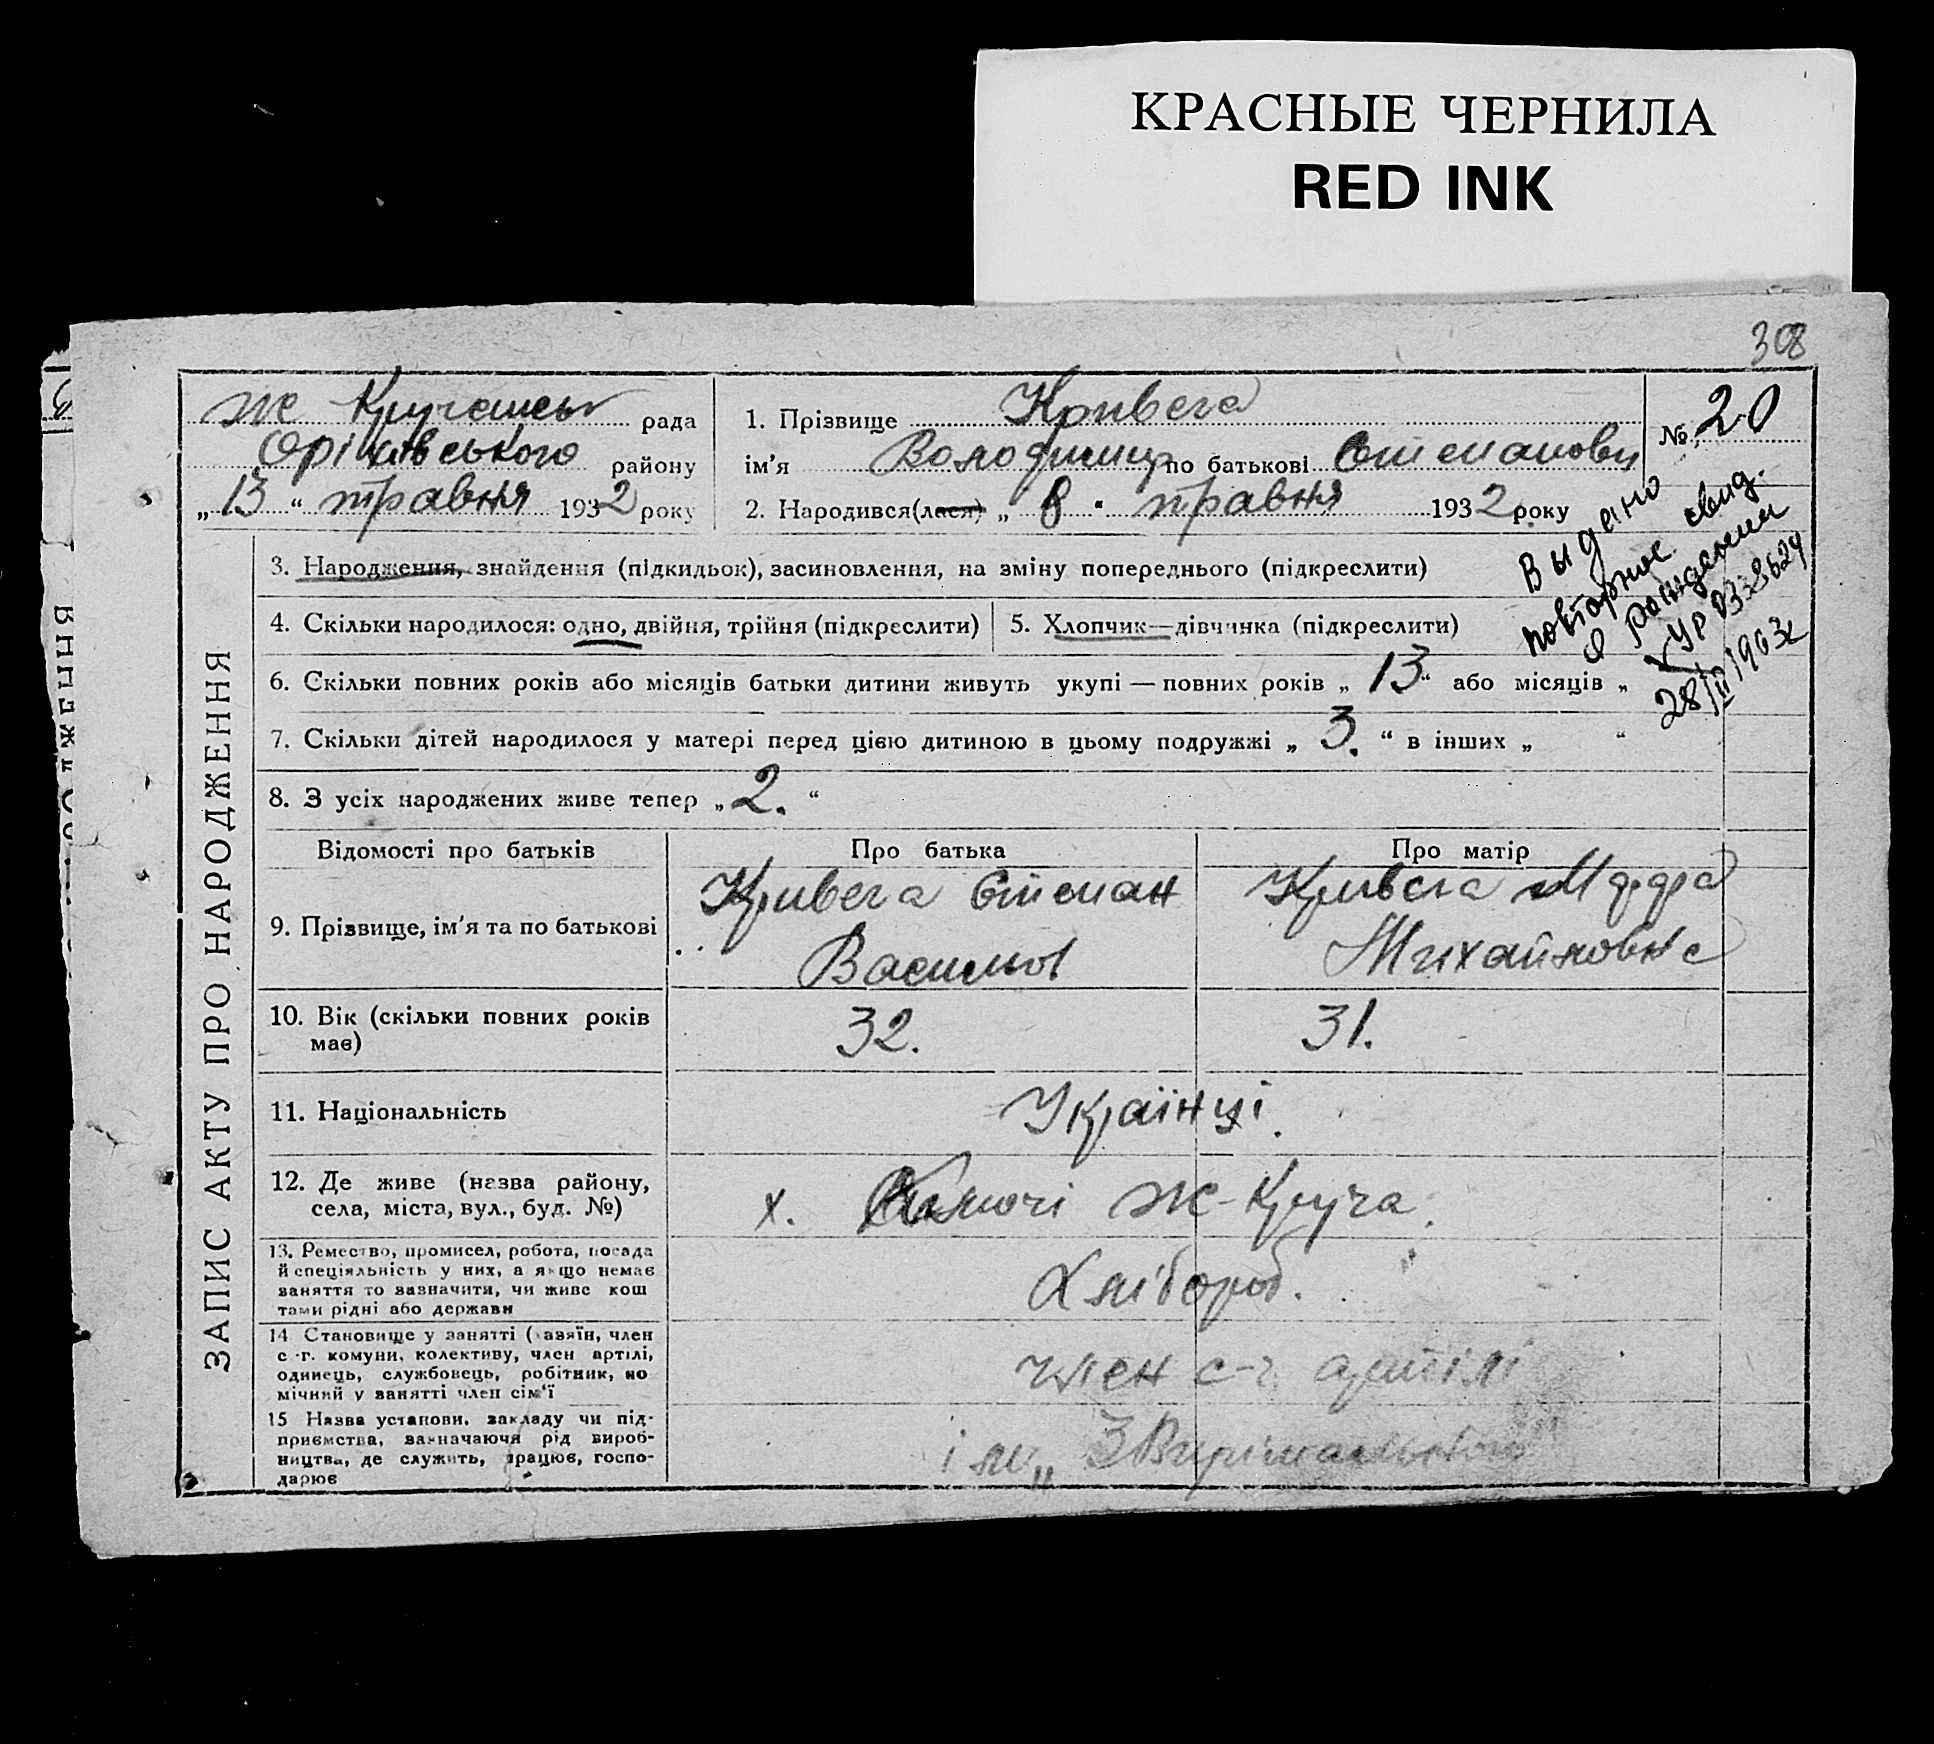 КРАСНЫЕ ЧЕРНИЛА
RED INK
308
рада
Оріхівського району
„13“ травня 1932 року
1. Прізвище Кривега
ім'я Володимир по батькові Степанович
2. Народився(лася) „8“ травня 1932 року
№ 20
Выдано
повторное свид.
о рождении
УР 0338629
28/II 1963г
ЗАПИС АКТУ ПРО НАРОДЖЕННЯ
3. Народження, знайдення (підкидьок), засиновлення, на зміну попереднього (підкреслити)
4. Скільки народилося: одно, двійня, трійня (підкреслити)
5. Хлопчик—дівчинка (підкреслити)
6. Скільки повних років або місяців батьки дитини живуть укупі — повних років „13“ або місяців „
7. Скільки дітей народилося у матері перед цією дитиною в цьому подружжі „3.“ в інших „ “
8. З усіх народжених живе тепер „2.“
Відомості про батьків
Про батька
Про матір
9. Прізвище, ім'я та по батькові
Кривега Степан
Васильов
Кривега
Михайловна
10. Вік (скільки повних років
має)
32.
31.
11. Національність
Українці.
12. Де живе (назва району,
села, міста, вул., буд. №)
х. Ж-Круча.
13. Ремество, промисел, робота, посада
й спеціяльність у них, а якщо немає
заняття то зазначити, чи живе кош
тами рідні або держави
Хлібороб.
14. Становище у занятті (хазяїн, член
с.-г. комуни, колективу, член артілі,
одинець, службовець, робітник, по
мічний у занятті член сім'ї
член с-г. артілі
15 Назва установи, закладу чи під-
приємства, зазначаючи рід вироб-
ництва, де служить, працює, госпо-
дарює
ім.